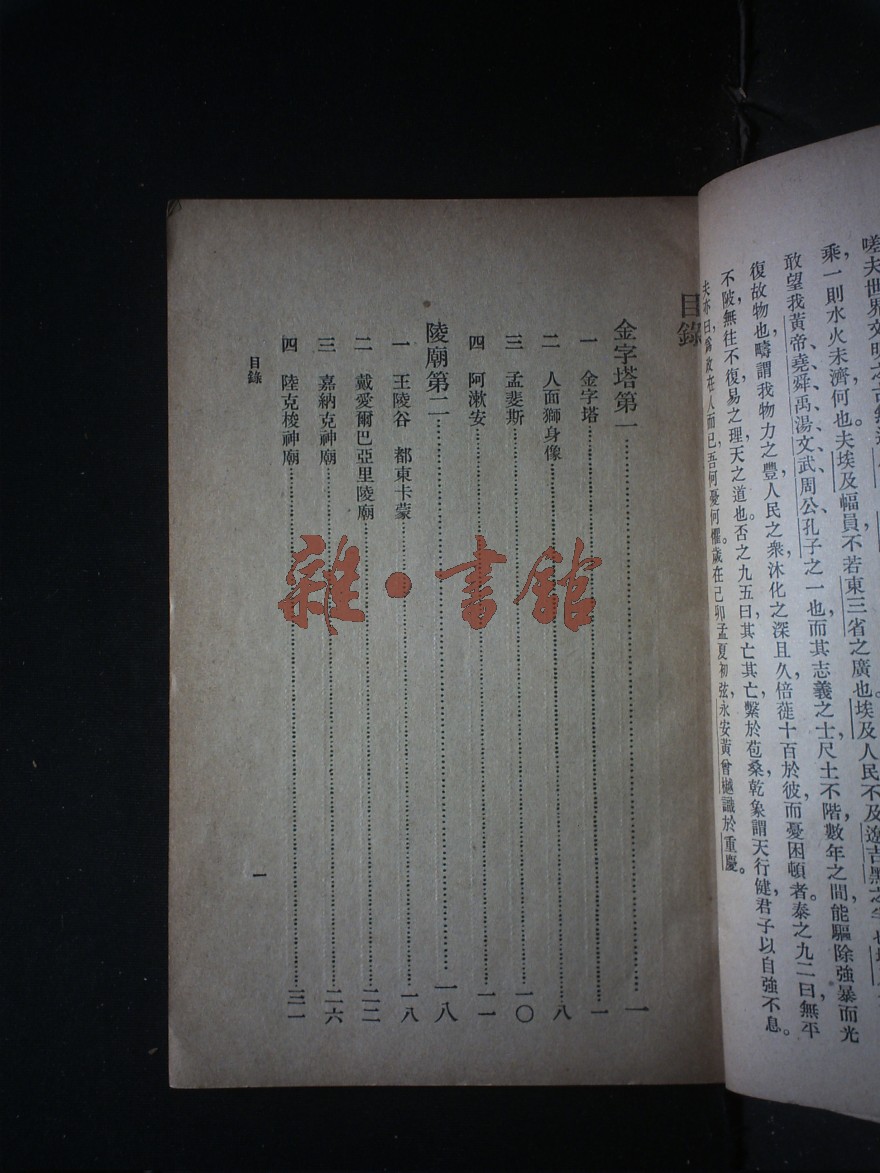 嗟夫世界文明之古無
乘一則水火未濟何也。夫埃及幅員不若東三省之廣也埃及人民不及遼吉黑之
敢望我黃帝、堯、舜、禹、湯、文、武、周公、孔子之一也而其志義之士尺土不階,數年之間能驅除強暴而光
復故物也,疇謂我物力之豐人民之衆,沐化之深且久倍蓰十百於彼而憂困頓者。泰之九二曰無平
不陂,無往不復易之理,天之道也。否之九五曰,其亡其亡,繫於苞桑乾象謂天行健,君子以自強不息。
夫亦曰爲故在人而已,吾何憂何懼。歲在己卯孟夏初弦,永安黃曾樾識於重慶。
目錄
金字塔第一……一
一 金字塔……一
二 人面獅身像……八
三 孟斐斯……一〇
四 阿漱安……一一
陵廟第二……一八
一 王陵谷 都東卡蒙……一八
二 戴愛爾巴亞里陵廟……二二
三 嘉納克神廟……二六
四 陸克梭神廟……三一
目錄
一
雜·書館